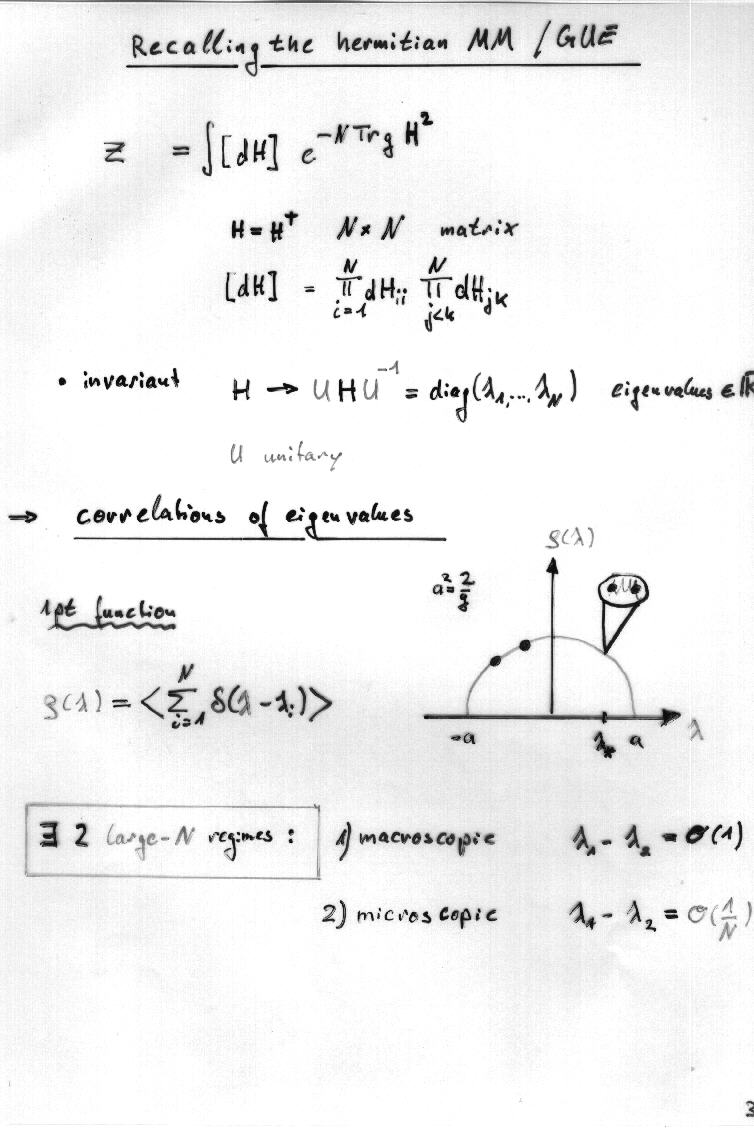 Recalling the hermitian MM / GUE
Z = ∫[dH] e^{-N Tr g H²}
H = H† N × N matrix
[dH] = ∏_{i=1}^{N} dH_{ii} ∏_{j<k}^{N} dH_{jk}
• invariant H → U H U^{-1} = diag(λ₁,..., λ_N) eigenvalues ∈ ℝ
U unitary
→ correlations of eigenvalues
ρ(λ)
a² = 2/g
1pt function
ρ(λ) = < ∑_{i=1}^{N} δ(λ - λ_i) >
-a λ_* a λ
∃ 2 large-N regimes : 1) macroscopic λ₁ - λ₂ = O(1)
2) microscopic λ₁ - λ₂ = O(1/N)
3